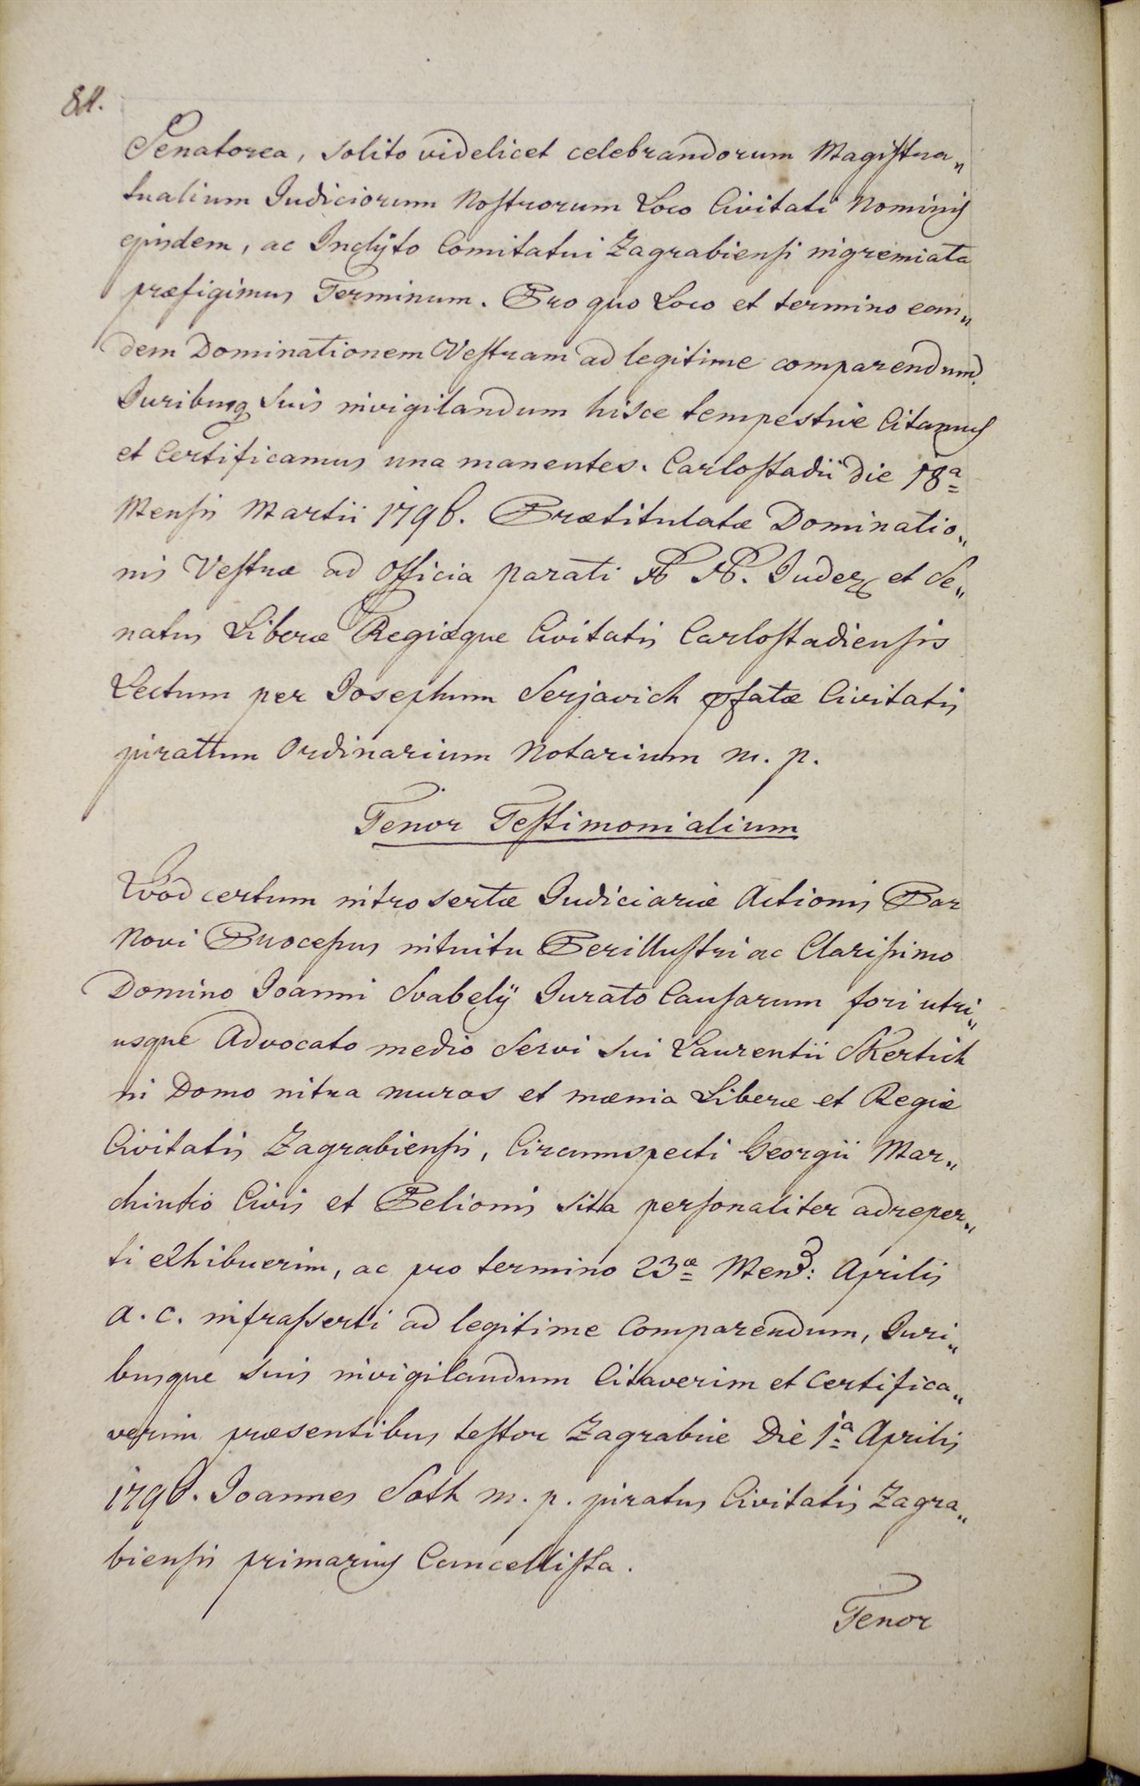 84.
Senatorea, solito videlicet celebrandorum Magistra„
tualium Judiciorum Nostrorum Loco Civitati Nominis
ejusdem, ac Inclÿto Comitatui Zagrabiensi ingremiata
præfigimus Terminum. Pro quo Loco et termino ean„
dem Dominationem Vestram ad legitime comparendum
Juribusq suis invigilandum hisce tempestive Citamus
et Certificamus una manentes. Carlostadii die 18a
Mensis Martii 1796. Prætitulatæ Dominatio„
nis Vestræ ad officia parati NN. Judex et Se„
natus Liberæ Regiæque Civitatis Carlostadiensis
Lectum per Josephum Serjavich pfatæ Civitatis
juratum Ordinarium Notarium m. p.
Tenor Testimonialium
Quod certum introsertæ Judiciariæ Actionis Par
Novi Processus intuitu Perillustri ac Clarissimo
Domino Joanni Svabelÿ Jurato Causarum fori utri„
usque Advocato medio Servi sui Laurentii Skertich
in Domo intra muros et mænia Liberæ et Regiæ
Civitatis Zagrabiensis, Circumspecti Georgii Mar„
chinko Civis et Pelionis sita personaliter adreper„
ti exhibuerim, ac pro termino 23æ Mens: Aprilis
a. c. infrasserti ad legitime Comparendum, Juri„
busque suis invigilandum Citaverim et Certifica„
verim præsentibus testor Zagrabiæ Die 1a Aprilis
1796. Joannes Soth m. p. juratus Civitatis Zagra„
biensis primarius Cancellista.
Tenor